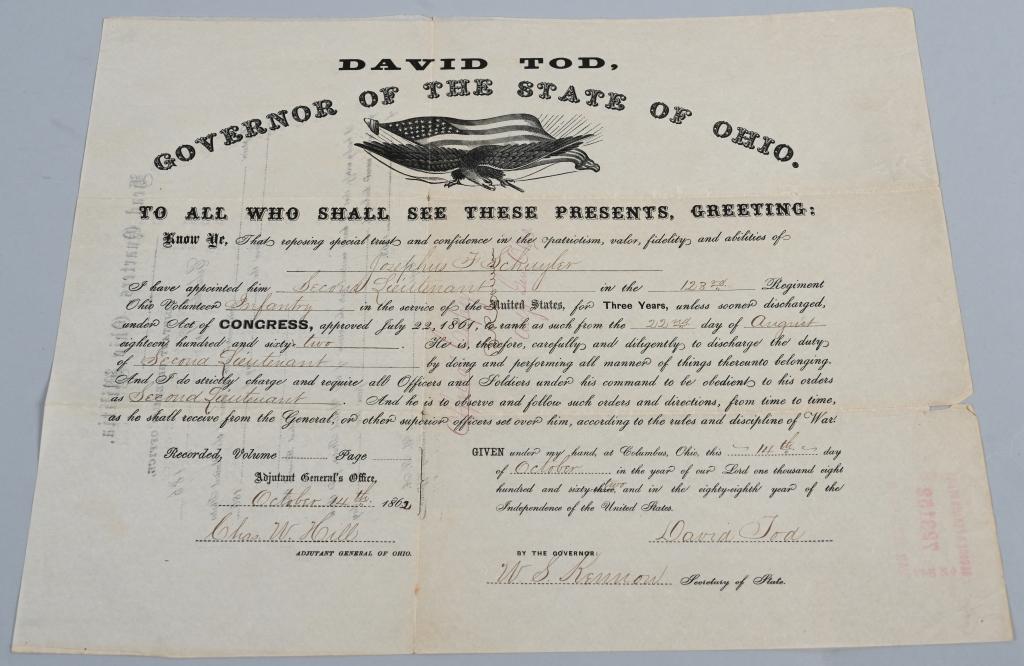 DAVID TOD,
GOVERNOR OF THE STATE OF OHIO.
TO ALL WHO SHALL SEE THESE PRESENTS, GREETING:
Know Ye, That reposing special trust and confidence in the patriotism, valor, fidelity and abilities of
Josephus F Schuyler
I have appointed him Second Lieutenant in the 123rd Regiment
Ohio Volunteer Infantry in the service of the United States, for Three Years, unless sooner discharged,
under Act of CONGRESS, approved July 22, 1861, to rank as such from the 22nd day of August
eighteen hundred and sixty-two. He is, therefore, carefully and diligently to discharge the duty
of Second Lieutenant by doing and performing all manner of things thereunto belonging.
And I do strictly charge and require all Officers and Soldiers under his command to be obedient to his orders
as Second Lieutenant. And he is to observe and follow such orders and directions, from time to time,
as he shall receive from the General, or other superior officers set over him, according to the rules and discipline of War.
Recorded, Volume Page
Adjutant General's Office,
October 14th 1862
Chas. W. Hill
ADJUTANT GENERAL OF OHIO.
GIVEN under my hand, at Columbus, Ohio, this 14th day
of October in the year of our Lord one thousand eight
hundred and sixty-three, two and in the eighty-eighth year of the
Independence of the United States.
David Tod
BY THE GOVERNOR:
W. S. Kennon Secretary of State.